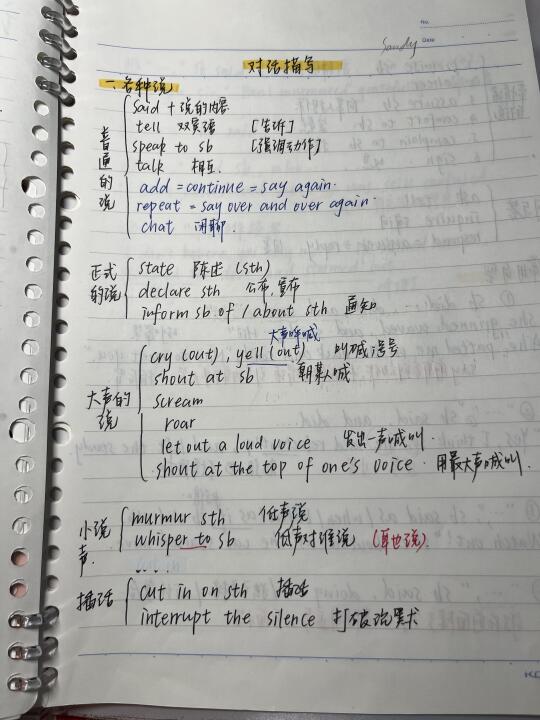 No.
Sandy Date
对话指导
一.各种说
普通的说
said + 说的内容
tell 双宾语 [告诉]
speak to sb [强调动作]
talk 相互.
add = continue = say again.
repeat = say over and over again.
chat 闲聊.
正式的说
state 陈述 (sth)
declare sth 公布,宣布
inform sb of / about sth 通知
大声的说
大声呼喊
cry (out), yell (out) 叫喊
shout at sb 朝某人喊
scream
roar
let out a loud voice 发出一声喊叫.
shout at the top of one's voice. 用最大声喊叫.
小声说
murmur sth 低声说
whisper to sb 低声对谁说 (耳边说).
...
插话
cut in on sth 插话
interrupt the silence 打破沉默